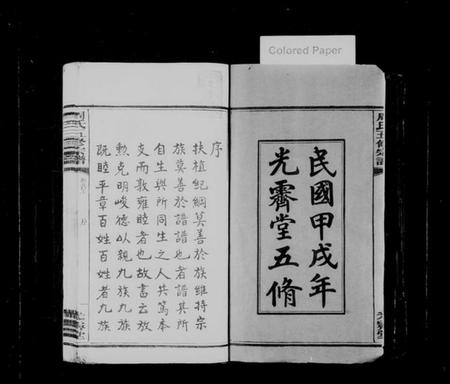 Colored Paper
民國甲戌年
光霽堂五脩
序
扶植紀綱莫善於族維持宗
族莫善於譜譜也者譜其所
自生與所同生之人共篤本
支而敦雍睦者也故書云放
勲克明峻德以親九族九族
既睦平章百姓百姓者九族